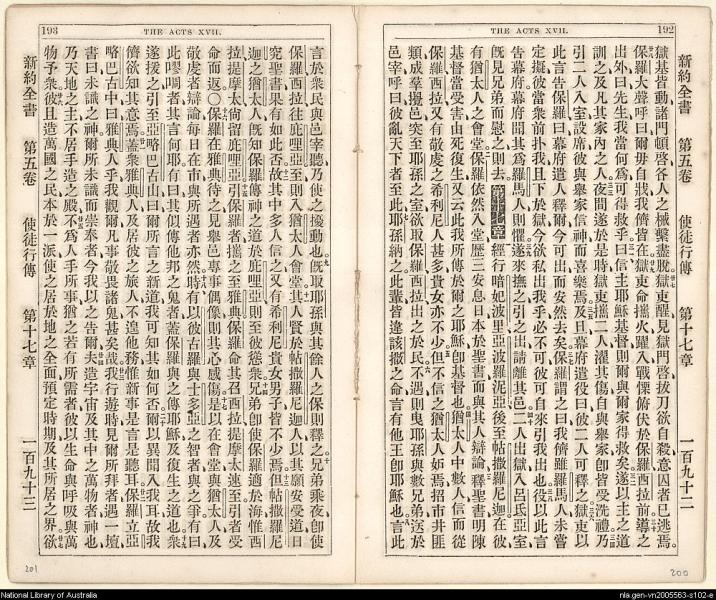 THE ACTS XVII. 192
新約全書 第五卷 使徒行傳 第十七章 一百九十二
獄基皆動諸門頓啓各人之械繫盡脫獄吏醒見獄門啓拔刀欲自殺意囚者已逃焉
保羅大聲呼曰爾毋自戕我儕皆在獄吏命攜火躍入戰慄俯伏於保羅西拉前導之
出外曰先生我當何爲可得救乎曰信主耶穌基督則爾與爾家得救矣遂以主之道
訓之及凡其家內之人夜間遂於是時獄吏攜二人濯其傷自與舉家卽皆受洗禮乃
引二人入室設席彼與舉家信神而喜樂焉及旦幕府遣役曰彼二人可釋之獄吏以
此言告保羅曰幕府遣人釋爾今可出而安然去矣保羅謂之曰我儕雖羅馬人未嘗
定擬彼當衆前扑我且下於獄今欲私出我乎必不可彼可自來引我出也役以此言
告幕府幕府聞其爲羅馬人則懼遂來撫之引之出請離其邑二人出獄入呂氐亞室
旣見兄弟而慰之則去第十七章經行暗妃波里亞波羅泥亞後至帖撒羅尼迦在彼
有猶太人之會堂保羅依然入堂歷三安息日本於聖書而與其人辯論釋聖書明陳
基督當受害由死復生又云此我所傳於爾之耶穌卽基督也猶太人中數人信而從
保羅西拉又有敬虔之希利尼人甚多貴女亦不少但不信之猶太人妬焉招市井匪
類成羣擾邑突至耶孫之室欲取保羅西拉出之於民不遇則曳耶孫與數兄弟送於
邑宰呼曰彼亂天下者至此耶孫納之此輩皆違該撒之命言有他王卽耶穌也言此
193 THE ACTS XVII.
言於衆民與邑宰聽乃使之擾動也旣取耶孫與其餘人之保則釋之兄弟乘夜卽使
保羅西拉往庇哩亞至則入猶太人會堂其人賢於帖撒羅尼迦人以其願安受道日
究聖書果有如此否故其中多人信之又有希利尼貴女男子皆不少焉但帖撒羅尼
迦之猶太人旣知保羅傳神之道於庇哩亞則至彼慫衆兄弟卽使保羅適於海惟西
拉提摩太尙留庇哩亞引保羅者攜之至雅典保羅命其召西拉提摩太速至引者受
命而返○保羅在雅典待之見舉邑專事偶像則其心感傷是以在會堂與猶太人及
敬虔者辯論每日在市與所遇者亦然時有以彼古羅與士多亞之智者與之爭有曰
此嘐嘐者其言何耶有曰其似傳他邦之鬼者蓋保羅與之傳耶穌及復生之道也衆
遂援之引至亞略巴古山曰爾所言之新道我可知其如何否爾以異聞入我耳故我
儕欲知其意焉蓋衆雅典人及居彼之旅人不遑他務惟新事是言是聽耳保羅立亞
略巴古中曰雅典人乎我觀爾凡事敬畏諸鬼甚矣哉我行遊時見爾所拜者遇一壇
書曰未識之神爾所未識而崇奉者今我以之告爾夫造宇宙及其中之萬物者神也
乃天地之主不居手造之殿不爲人手所事猶之若有所需者彼以生命與呼吸與萬
物予衆彼且造萬國之民本於一派使之居於地之全面預定時期及其所居之界欲
新約全書 第五卷 使徒行傳 第十七章 一百九十三
201
200
National Library of Australia
nla.gen-vn2005563-s102-e